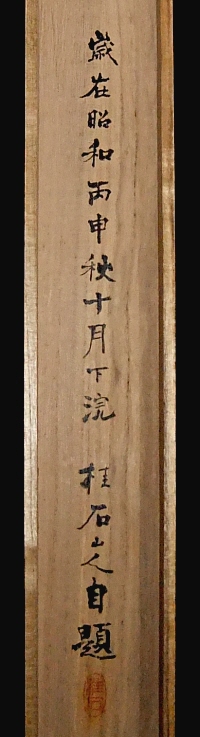 歳在昭和丙申秋十月下浣 桂石山人自題